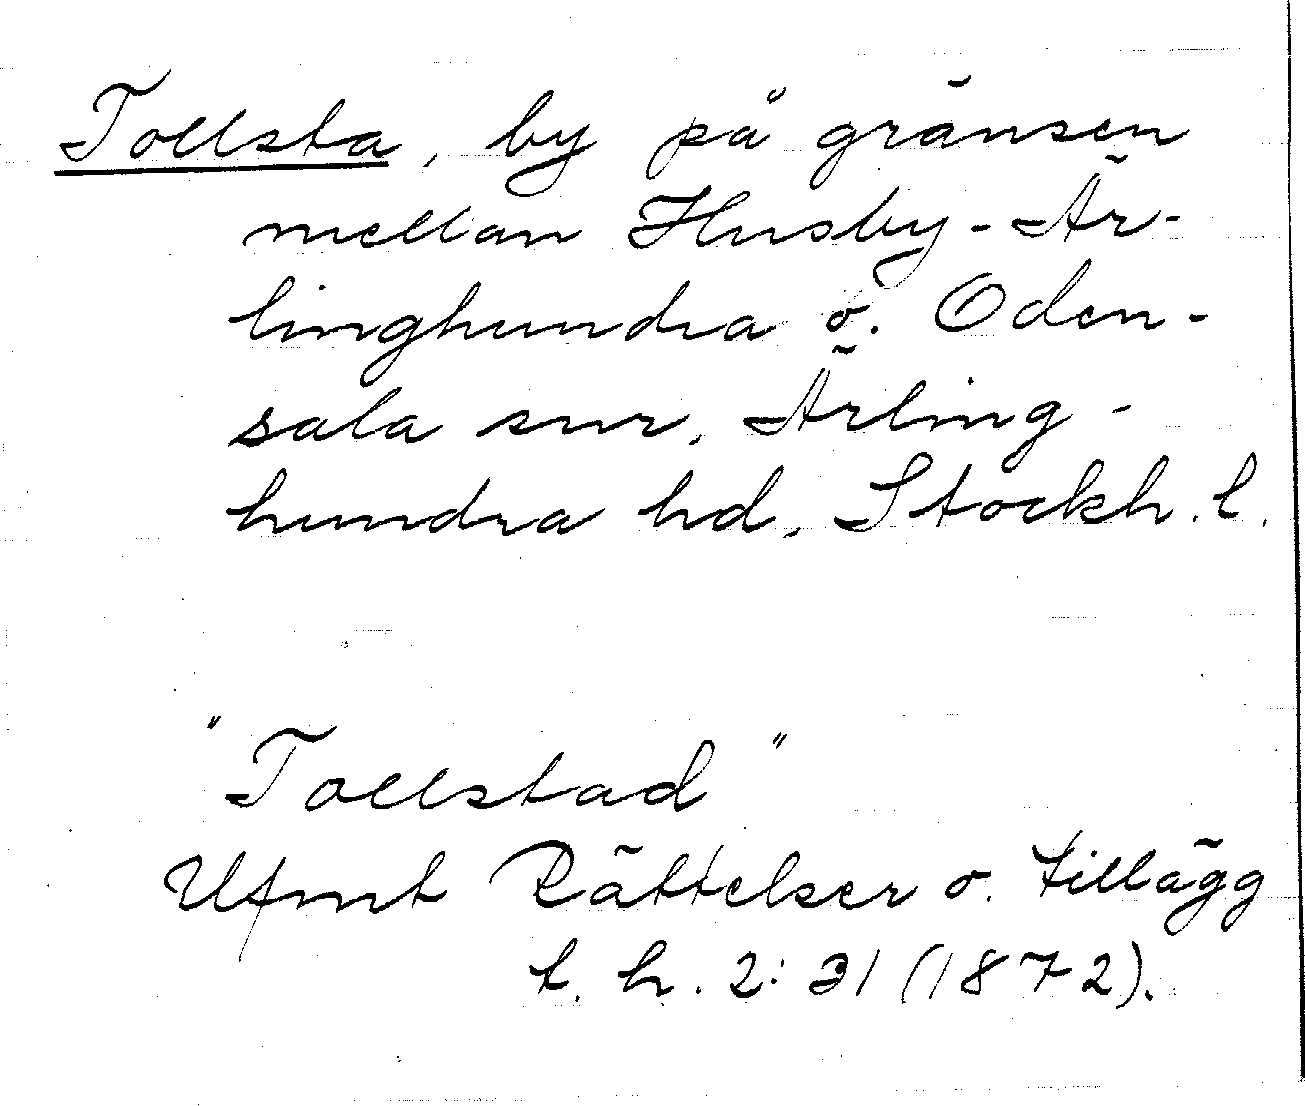 Tollsta, by på gränsen
mellan Husby-Är-
linghundra o. Oden-
sala snr, Ärling-
hundra hd, Stockh. l.
"Tollstad"
Ufmt Rättelser o. tillägg
t. h. 2: 31 (1872).